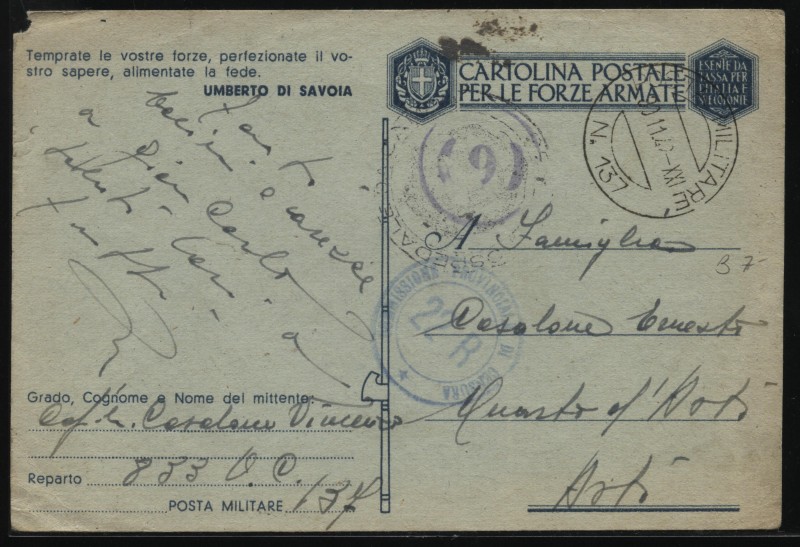 Temprate le vostre forze, perfezionate il vo-
stro sapere, alimentate la fede.
UMBERTO DI SAVOIA
CARTOLINA POSTALE
PER LE FORZE ARMATE
ESENTE DA
TASSA PER
L'ITALIA E
SUE COLONIE
MILITARE
N. 137
11.42-XXI
(9)
OSPEDALE
COMMISSIONE PROVINCIALE DI CENSURA
22R
Tanti
bacini e carezze
a Gian Carlo
saluti cari a
tutti
A Famiglia
Casalone Ernesto
Quarto d'Asti
Asti
B 7-
Grado, Cognome e Nome del mittente:
Casalone Vincenzo
Reparto 833 O.C.
POSTA MILITARE 137